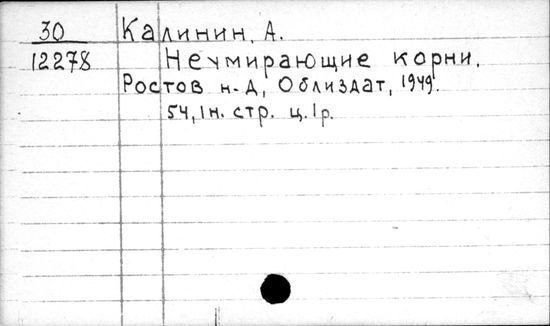 30 Калинин, А.
12278 Неумирающие корни.
Ростов н-Д, Облиздат, 1949.
54, 1н. стр. ц. 1р.